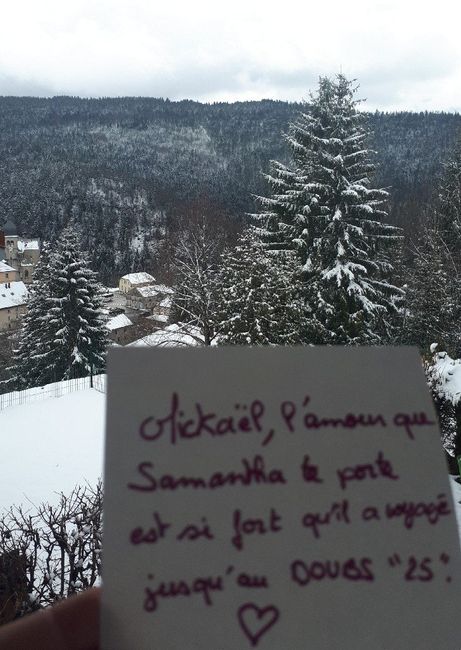 Mickaël, l'amour que
Samantha te porte
est si fort qu'il a voyagé
jusqu'au DOUBS "25".